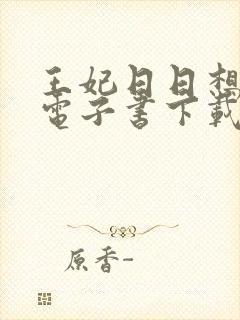 王妃日日想
電子書下載
原香-